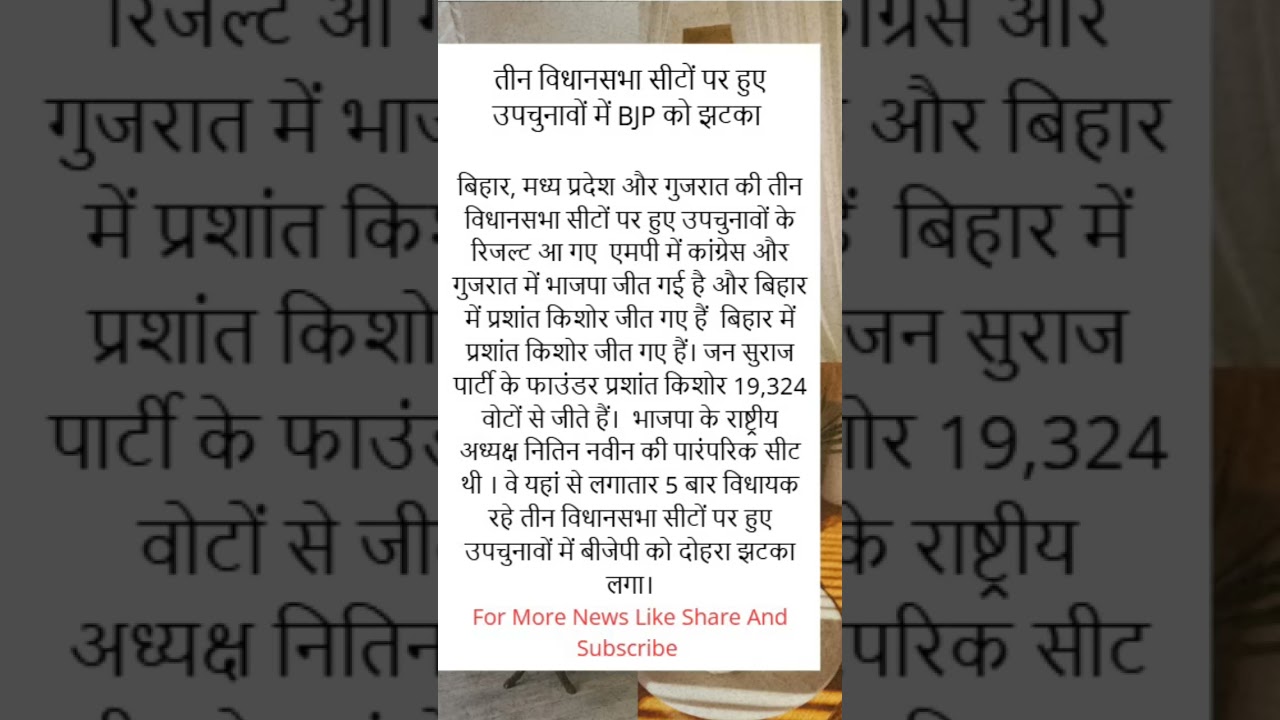 तीन विधानसभा सीटों पर हुए
उपचुनावों में BJP को झटका
बिहार, मध्य प्रदेश और गुजरात की तीन
विधानसभा सीटों पर हुए उपचुनावों के
रिजल्ट आ गए एमपी में कांग्रेस और
गुजरात में भाजपा जीत गई है और बिहार
में प्रशांत किशोर जीत गए हैं बिहार में
प्रशांत किशोर जीत गए हैं। जन सुराज
पार्टी के फाउंडर प्रशांत किशोर 19,324
वोटों से जीते हैं। भाजपा के राष्ट्रीय
अध्यक्ष नितिन नवीन की पारंपरिक सीट
थी । वे यहां से लगातार 5 बार विधायक
रहे तीन विधानसभा सीटों पर हुए
उपचुनावों में बीजेपी को दोहरा झटका
लगा।
For More News Like Share And
Subscribe